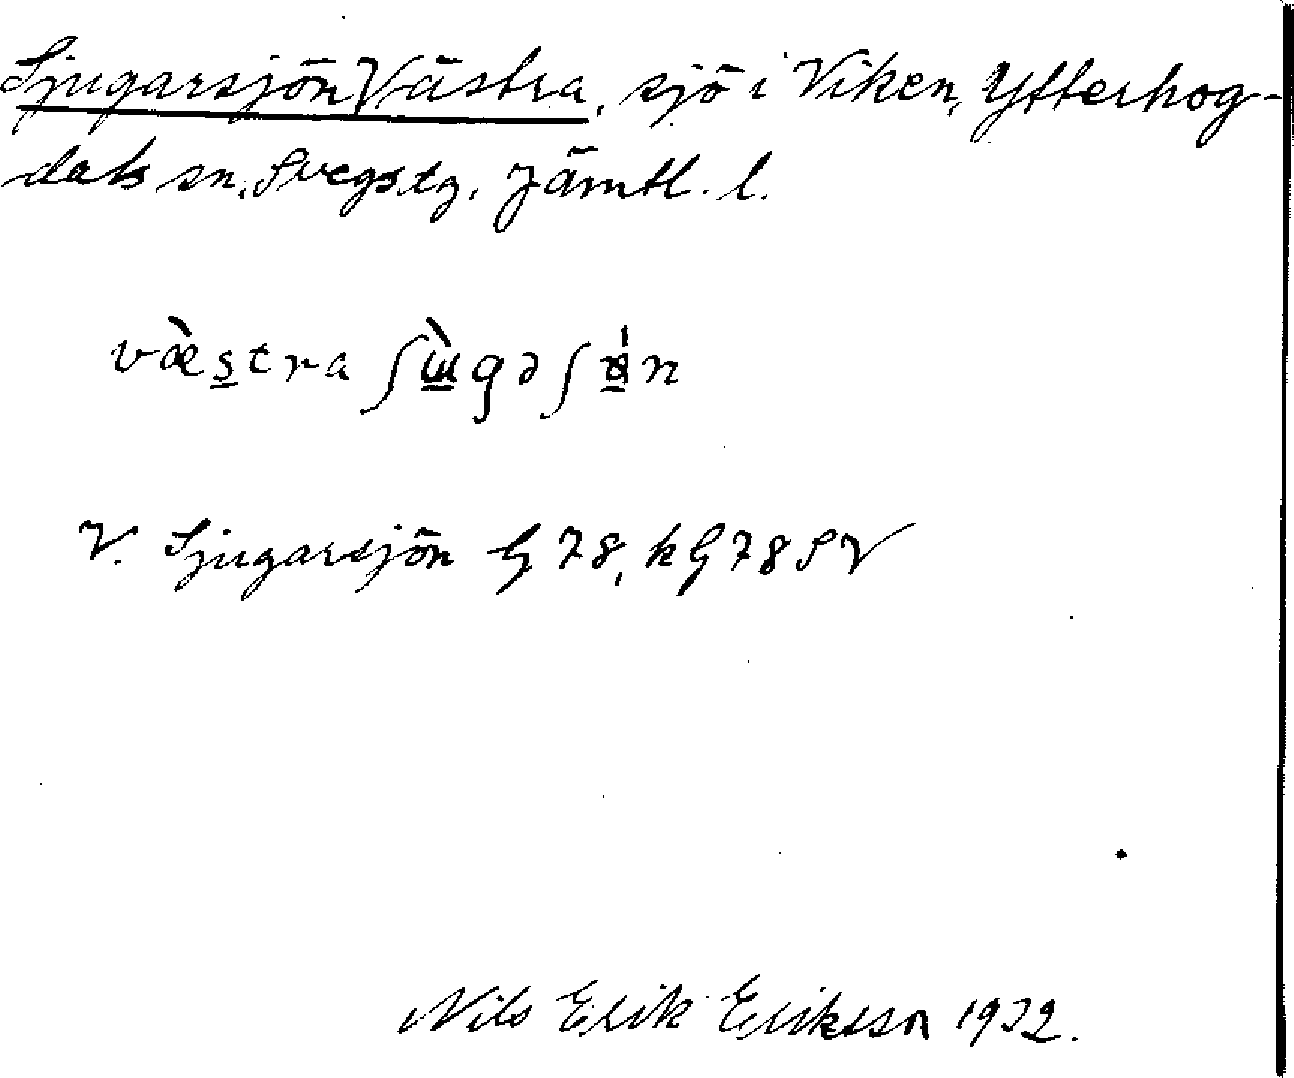 Sjugarsjön Västra, sjö i Viken, Ytterhog-
dals sn, Svegs tg, Jämtl. l.
væ̀stra
V. Sjugarsjön G 78, k G 78 SV
Nils Erik Eriksson 1932.